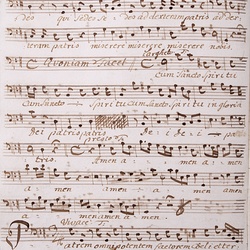 Deus qui sedes sedes ad dexteram patris ad dex
teram patris miserere miserere miserere nobis.
Quoniam Tacet Cum Sancto Spiritu
Cum Sancto Spiritu cum Sancto Spiritu in gloria
Dei patris patris Dei Dei patris
presto
tris. Amen amen a
amen amen amen a
amen amen amen.
Vivace
Patrem omnipotentem factorem coeli et ter